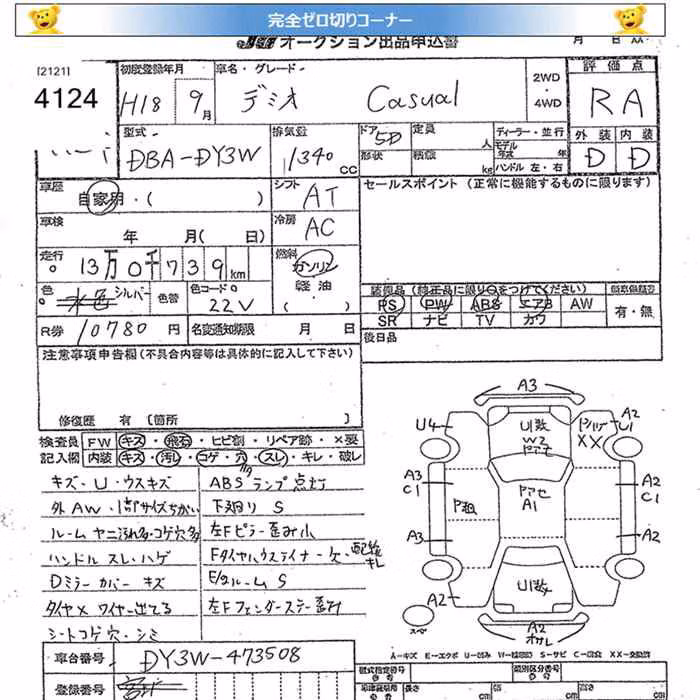 完全ゼロ切りコーナー
オークション出品申込書 月 日
[2121] 初度登録年月 車名・グレード 2WD・4WD 評価点
4124 H18 9月 デミオ Casual RA
型式 排気量 ドア 定員 人 ディーラー・並行 外装 内装
DBA-DY3W 1340 CC 5D 形状 積載 kg モデル年式 年 ハンドル 左・右 D D
車歴 自家用・( ) シフト AT セールスポイント (正常に機能するものに限ります)
車検 年 月( 日) 冷房 AC
走行 13万0千739km 燃料 ガソリン 軽油 ( )
色 水色 シルバー 色替 色コードNo 22V 装備品 (純正品に限り○をつけてください)
PS PW ABS エアB AW 有・無
SR ナビ TV カワ
R券 10780円 名変通知期限 月 日 後日品
注意事項申告欄 (不具合内容等は具体的に記入して下さい)
修復歴 有 [箇所 ]
検査員 FW キズ・飛石・ヒビ割・リペア跡・×要
記入欄 内装 キズ・汚レ・コゲ・穴・スレ・キレ・破レ
キズ・U・ウスキズ ABSランプ点灯
外AW・1部サイズちがい 下廻り S
ルームヤニ汚れ多・コゲ穴多 左Fピラー歪み小
ハンドル スレ・ハゲ Fタイヤハウスライナー欠・配線キレ
Dミラーカバー キズ E/gルーム S
タイヤ× ワイヤー出てる 左Fフェンダーステー歪み
シートコゲ穴・シミ
A3
U4 U1数 W2 A2 U1 XX
A3 C1 P跡 A1 A2 C1
A3 A2
A2 U1数
スペ A2
A-キズ E-エクボ U-凹み W-補修跡 S-サビ C-腐食 XX-交換済
車台番号 DY3W-473508 型式指定番号 類別区分番号
登録番号 長さ cm 幅 cm 高さ cm